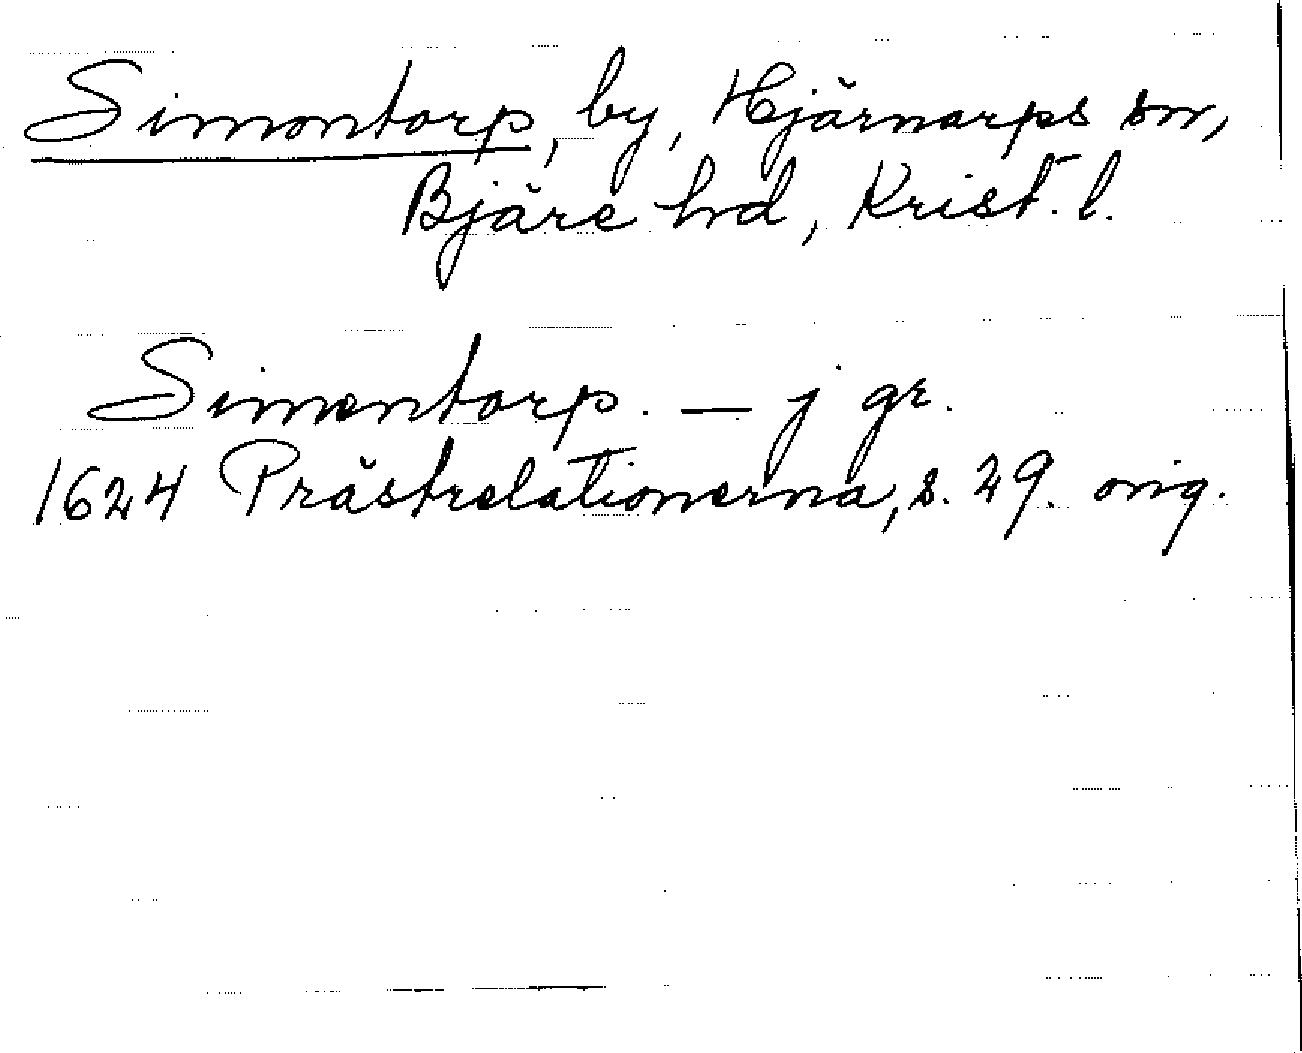 Simontorp, by, Hjärnarps sn,
Bjäre hd, Krist. l.
Simentorp. — j gr.
1624 Prästrelationerna, s. 29. orig.